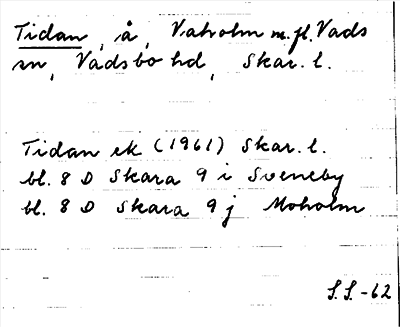 Tidan, å, Vaholm m.fl. Vads
sn, Vadsbo hd, Skar. l.
Tidan ek (1961) Skar. l.
bl. 8 D Skara 9 i Sveneby
bl. 8 D Skara 9 j Moholm
S.S.-62